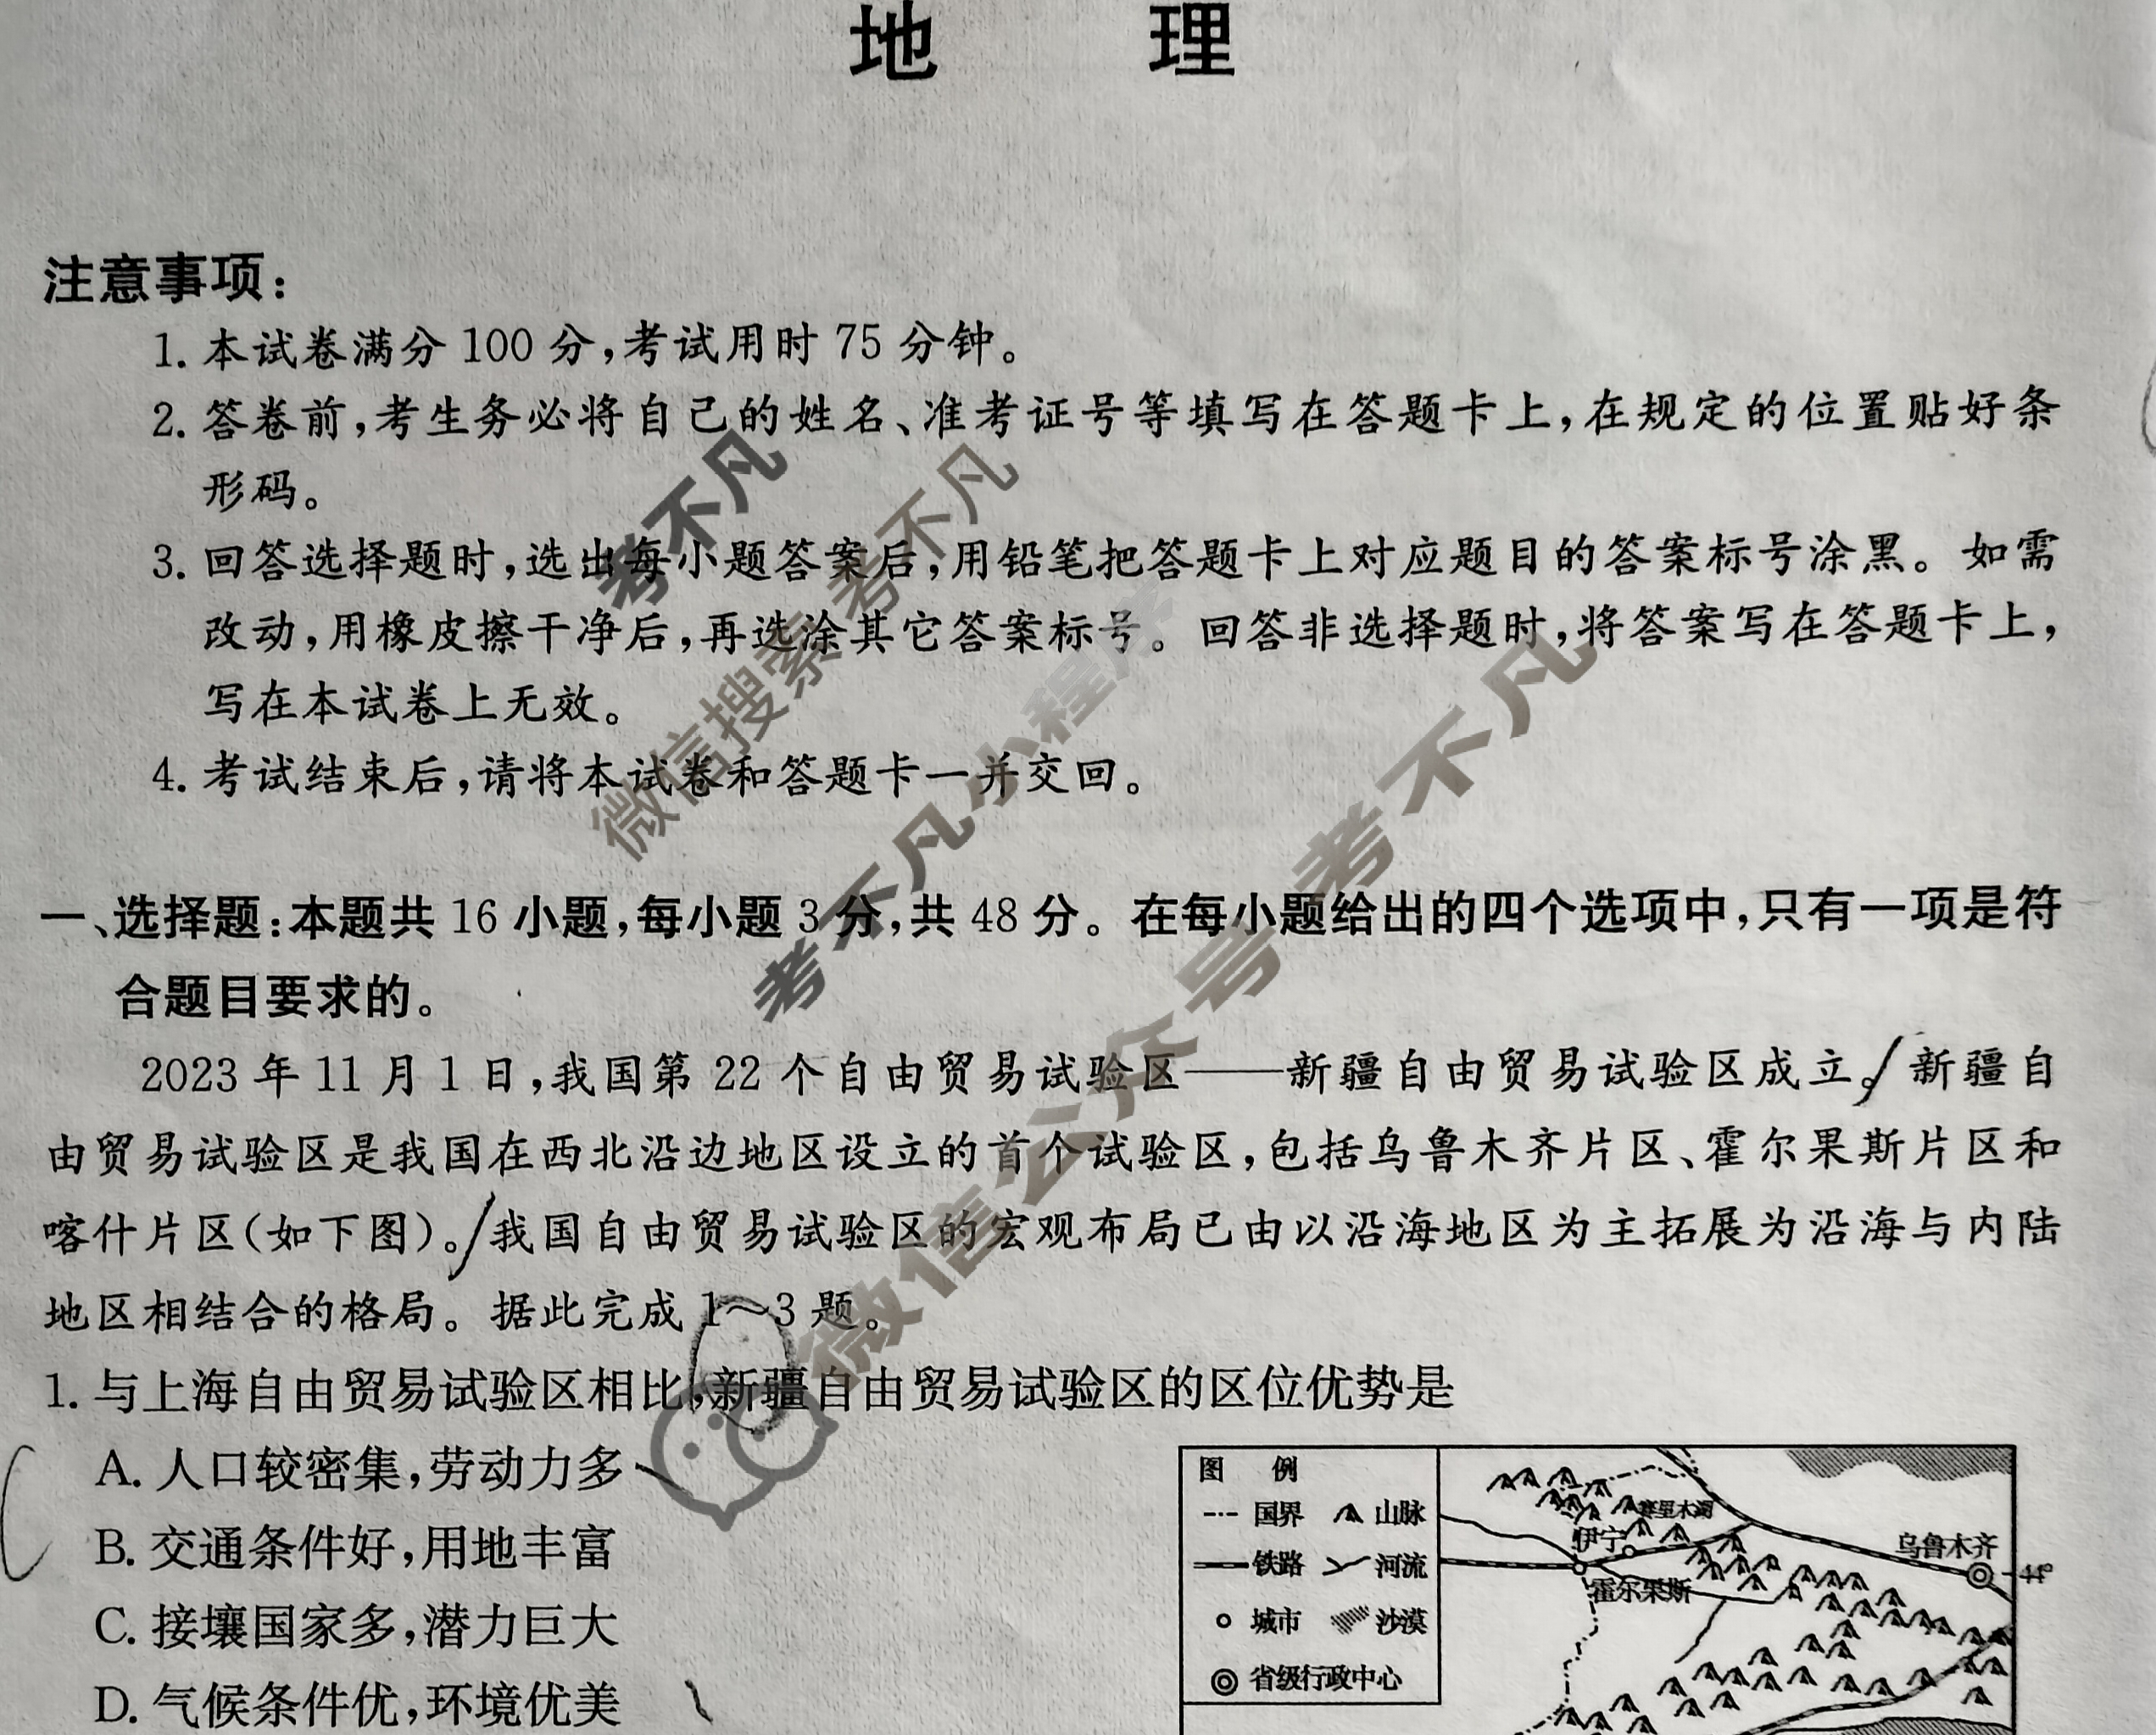 地 理
注意事项：
1. 本试卷满分 100 分，考试用时 75 分钟。
2. 答卷前，考生务必将自己的姓名、准考证号等填写在答题卡上，在规定的位置贴好条
形码。
3. 回答选择题时，选出每小题答案后，用铅笔把答题卡上对应题目的答案标号涂黑。如需
改动，用橡皮擦干净后，再选涂其它答案标号。回答非选择题时，将答案写在答题卡上，
写在本试卷上无效。
4. 考试结束后，请将本试卷和答题卡一并交回。
考不凡
微信搜索 考不凡
考不凡小程序
微信公众号 考不凡
一、选择题：本题共 16 小题，每小题 3 分，共 48 分。在每小题给出的四个选项中，只有一项是符
合题目要求的。
2023 年 11 月 1 日，我国第 22 个自由贸易试验区——新疆自由贸易试验区成立。新疆自
由贸易试验区是我国在西北沿边地区设立的首个试验区，包括乌鲁木齐片区、霍尔果斯片区和
喀什片区（如下图）。我国自由贸易试验区的宏观布局已由以沿海地区为主拓展为沿海与内陆
地区相结合的格局。据此完成 1～3 题。
1. 与上海自由贸易试验区相比，新疆自由贸易试验区的区位优势是
A. 人口较密集，劳动力多
B. 交通条件好，用地丰富
C. 接壤国家多，潜力巨大
D. 气候条件优，环境优美
图 例
国界 山脉
铁路 河流
城市 沙漠
省级行政中心
赛里木湖
伊宁
霍尔果斯
乌鲁木齐
44°